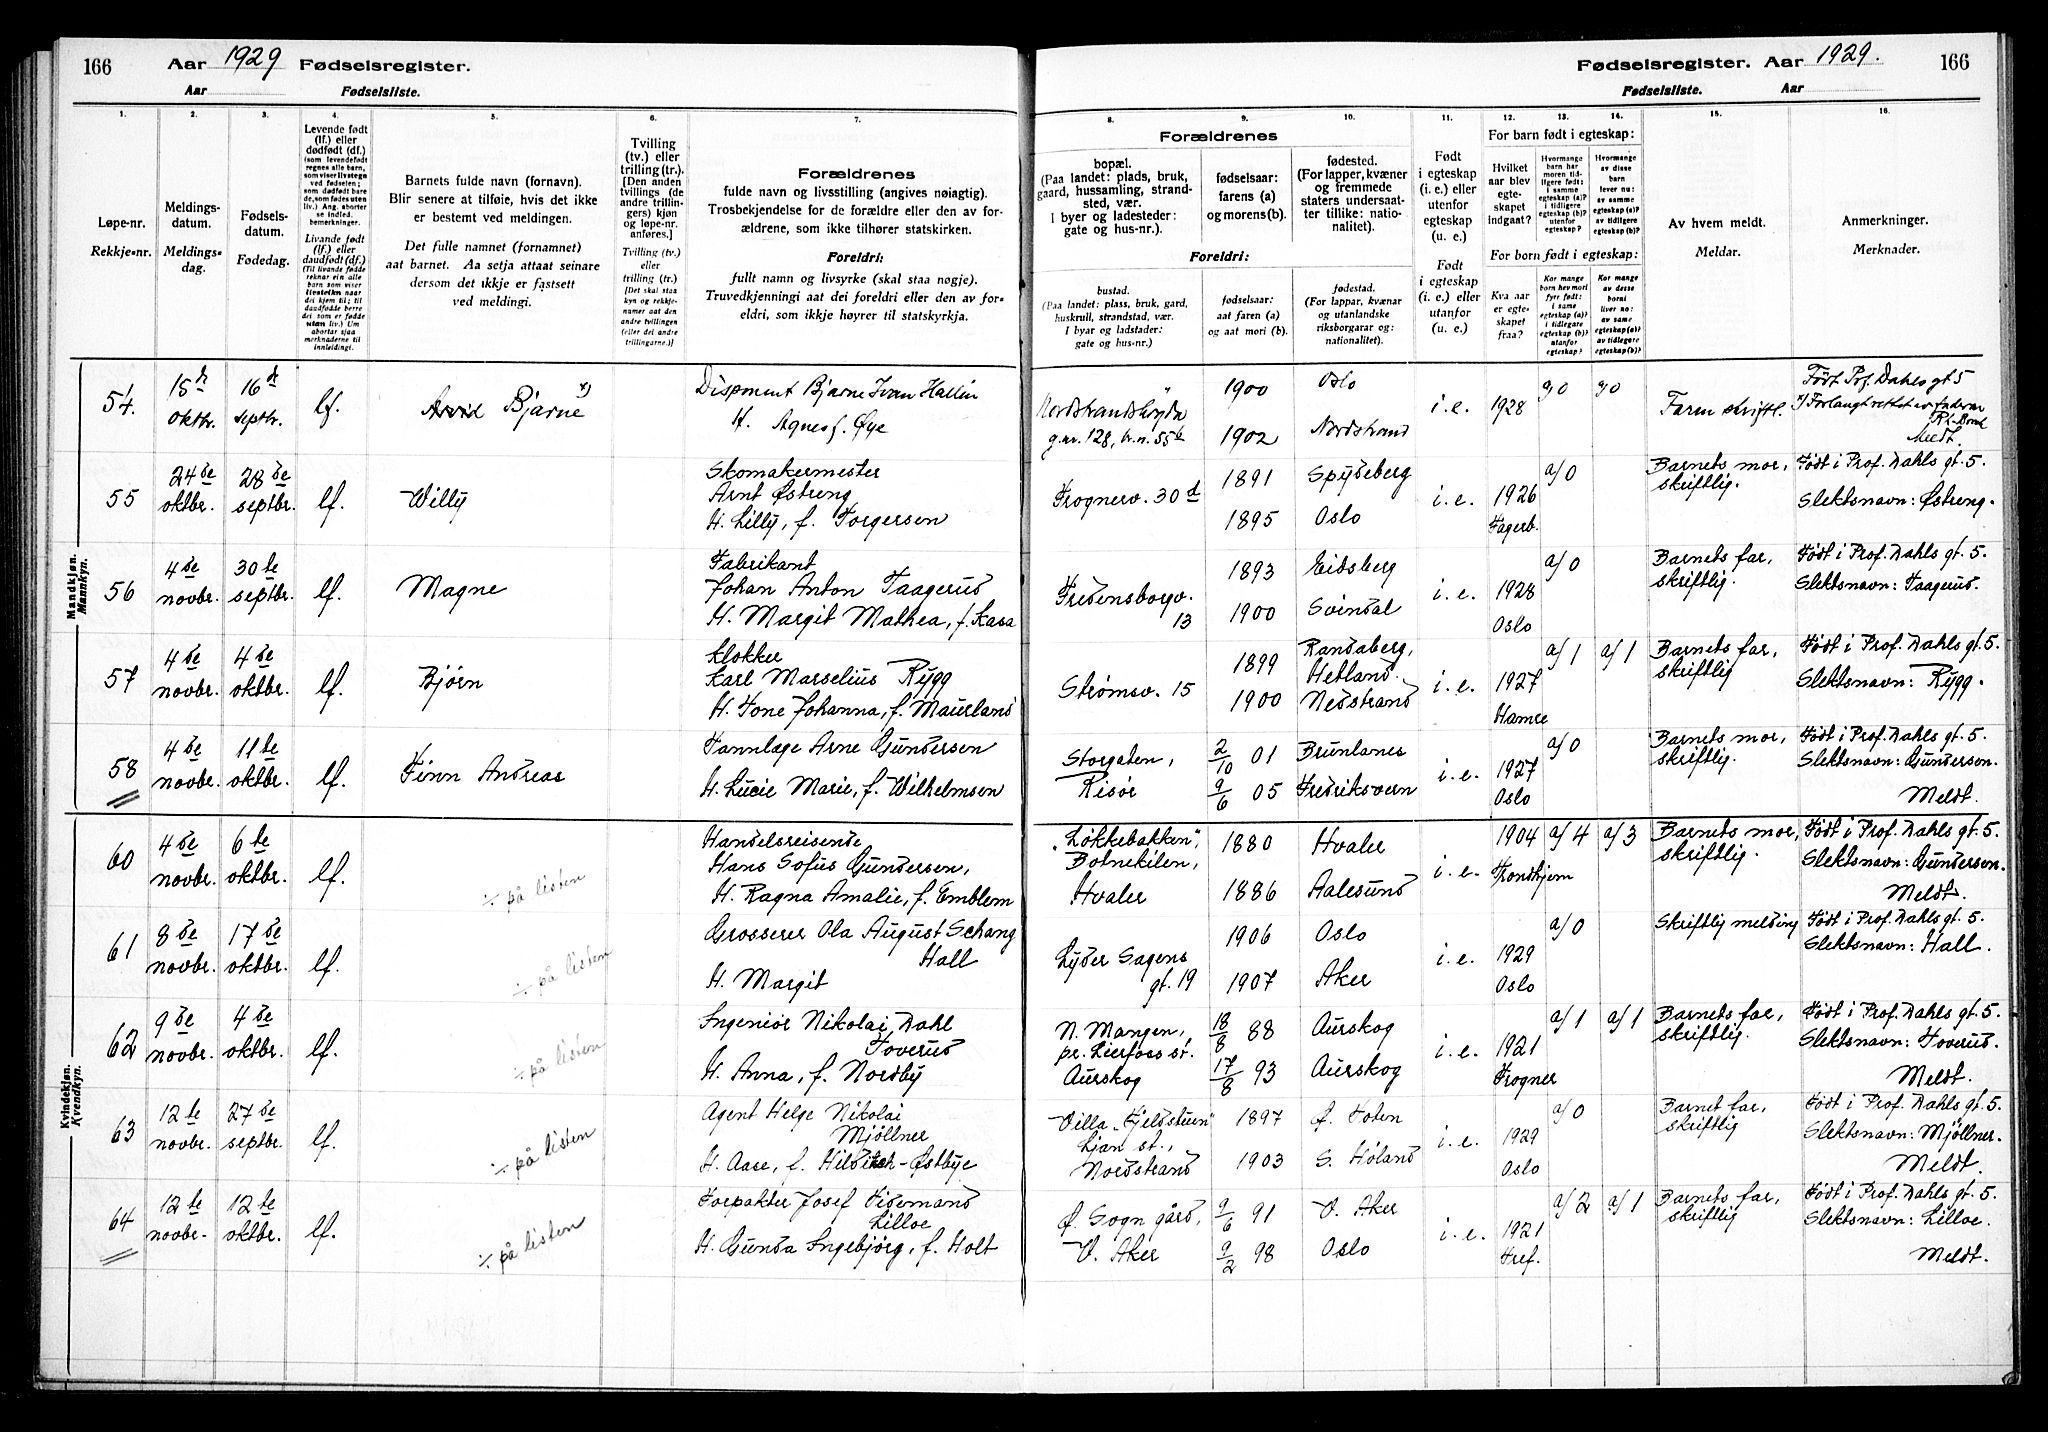 166 Aar 1929 Fødselsregister.
Aar Fødselsliste.
Fødselsregister. Aar 1929. 166
Fødselsliste. Aar
1. 2. 3. 4. 5. 6. 7.
Løpe-nr.
Rekkje-nr.
Meldings-
datum.
Meldings-
dag.
Fødsels-
datum.
Fødedag.
Levende født
(lf.) eller
dødfødt (df.)
(som levendefødt
regnes alle barn,
som viser livstegn
ved fødselen;
som dødfødt bare
de, som fødes uten
liv.) Ang. aborter
se indled.
bemerkninger.
Livande født
(lf.) eller
daudfødt (df.)
(Til livande fødde
reknar ein alle
barn som viser
livsteikn naar
dei kjem til; til
daudfødde berre
dei som er fødde
utan liv.) Um
abortar sjaa
merknaderne til
innleidingi.
Barnets fulde navn (fornavn).
Blir senere at tilføie, hvis det ikke
er bestemt ved meldingen.
Det fulle namnet (fornamnet)
aat barnet. Aa setja attaat seinare
dersom det ikkje er fastsett
ved meldingi.
Tvilling
(tv.) eller
trilling (tr.).
[Den anden
tvillings (de
andre trillin-
gers) kjøn
og løpe-nr.
anføres.]
Tvilling (tv.)
eller
trilling (tr.)
[Det skal staa
kyn og rekkje-
numer aat den
andre tvillingen
(eller dei andre
trillingarne.)]
Forældrenes
fulde navn og livsstilling (angives nøiagtig).
Trosbekjendelse for de forældre eller den av for-
ældrene, som ikke tilhører statskirken.
Foreldri:
fullt namn og livsyrke (skal staa nøgje).
Truvedkjenningi aat dei foreldri eller den av for-
eldri, som ikkje høyrer til statskyrkja.
8. 9. 10. 11. 12. 13. 14. 15. 16.
Forældrenes
bopæl.
(Paa landet: plads, bruk,
gaard, hussamling, strand-
sted, vær.
I byer og ladesteder:
gate og hus-nr.).
fødselsaar:
farens (a)
og morens (b).
fødested.
(For lapper, kvæner
og fremmede
staters undersaat-
ter tillike: natio-
nalitet).
Foreldri:
bustad.
(Paa landet: plass, bruk, gard,
huskrull, strandstad, vær.
I byar og ladstader:
gate og hus-nr.)
fødselsaar:
aat faren (a)
og aat mori (b).
fødestad.
(For lappar, kvænar
og utanlandske
riksborgarar og:
nationalitet).
Født
i egteskap
(i. e.) eller
utenfor
egteskap
(u. e.)
Født
i egteskap
(i. e.) eller
utanfor
(u. e.).
For barn født i egteskap:
Hvilket
aar blev
egte-
skapet
indgaat?
Hvormange
barn har
moren tid-
ligere født:
i samme
egteskap (a)?
i tidligere
egteskap (b)?
utenfor
egteskap?
Hvormange
av disse
barn
lever nu:
av samme
egteskap (a)?
av tidligere
egteskap (b)?
For born født i egteskap:
Kva aar
er egte-
skapet
fraa?
Kor mange
barn hev mori
fyrr født:
i same
egteskap (a)?
i tidlegare
egteskap (b)?
utanfor
egteskap?
Kor mange
av desse
borni
liver no:
av same
egteskap (a)?
av tidlegare
egteskap (b)?
Av hvem meldt.
Meldar.
Anmerkninger.
Merknader.
Mandkjøn.
Mannkyn.
54. 15d oktbr. 16d septbr. lf. Arvid Bjarne x)
Disponent Bjarne Ivan Hallin
H. Agnes f. Øye
Nordstrandshøyda
g.nr. 128, br.n. 55b
1900 Oslo
1902 Nordstrand
i. e. 1928 Faren skriftl.
Født Prof. Dahls gt. 5
Meldt.
55 24de oktbr. 28de septbr. lf. Willy
Skomakermester
Arnt Østreng
H. Lilly, f. Torgersen
Frognerv. 30d
1891 Spydeberg
1895 Oslo
i. e. 1926 Fagerb. a/0
Barnets mor,
skriftlig.
Født i Prof. Dahls gt. 5.
Slektsnavn: Østreng.
56 4de novbr. 30te septbr. lf. Magne
Fabrikant
Johan Anton Taagerud
H. Margit Mathea, f. Kasa
Fredensborgv.
13
1893 Eidsberg
1900 Svindal
i. e. 1928 Oslo a/0
Barnets far,
skriftlig.
Født i Prof. Dahls gt. 5.
Slektsnavn: Taagerud.
57 4de novbr. 4de oktbr. lf. Bjørn
Klokker
Karl Marselius Rygg
H. Tone Johanna, f. Maurland
Strømsv. 15
1899 Randaberg,
Hetland.
1900 Nedstrand
i. e. 1927 Hamre a/1 a/1
Barnets far,
skriftlig
Født i Prof. Dahls gt. 5.
Slektsnavn: Rygg.
58 4de novbr. 11te oktbr. lf. Finn Andreas
Tannlæge Arne Gundersen
H. Lucie Marie, f. Wilhelmsen
Storgaten,
Risør
2/10 01 Brunlanes
9/6 05 Fredriksvern
i. e. 1927 Oslo a/0
Barnets mor,
skriftlig.
Født i Prof. Dahls gt. 5.
Slektsnavn: Gundersen.
Meldt.
Kvindekjøn.
Kvendkyn.
60 4de novbr. 6te oktbr. lf. ÷ på listen
Handelsreisende
Hans Sofus Gundersen,
H. Ragna Amalie, f. Emblem
"Løkkebakken",
Botnekilen,
Hvaler
1880 Hvaler
1886 Aalesund
i. e. 1904 Trondhjem a/4 a/3
Barnets mor,
skriftlig.
Født i Prof. Dahls gt. 5.
Slektsnavn: Gundersen.
Meldt.
61 8de novbr. 17de oktbr. lf. ÷ på listen
Grosserer Ola August Schang
Hall
H. Margit
Lyder Sagens
gt. 19
1906 Oslo
1907 Aker
i. e. 1929 Oslo a/0
Skriftlig melding
Født i Prof. Dahls gt. 5.
Slektsnavn: Hall.
62 9de novbr. 4de oktbr. lf. ÷ på listen
Ingeniør Nikolai Dahl
Toverud
H. Anna, f. Nordby
N. Mangen,
pr. Lierfoss st.
Aurskog
18/8 88 Aurskog
17/8 93 Aurskog
i. e. 1921 Frogner a/1 a/1
Barnets far,
skriftlig.
Født i Prof. Dahls gt. 5.
Slektsnavn: Toverud.
Meldt.
63 12te novbr. 27de septbr. lf. ÷ på listen
Agent Helge Nikolai
Mjöllner
H. Aase, f. Hilditch-Østbye
Villa "Fjeldstuen"
Ljan st.,
Nordstrand
1897 Ø. Toten
1903 S. Høland
i. e. 1929 Oslo a/0
Barnet far,
skriftlig
Født i Prof. Dahls gt. 5.
Slektsnavn: Mjöllner.
Meldt.
64 12te novbr. 12te oktbr. lf. ÷ på listen
Forpakter Josef Tidemand
Lilloe
H. Gunda Ingebjørg, f. Holt
Ø. Sogn gård,
V. Aker
9/6 91 V. Aker
9/2 98 Oslo
i. e. 1921 Tref. a/2 a/1
Barnets far,
skriftlig
Født i Prof. Dahls gt. 5.
Slektsnavn: Lilloe.
Meldt.